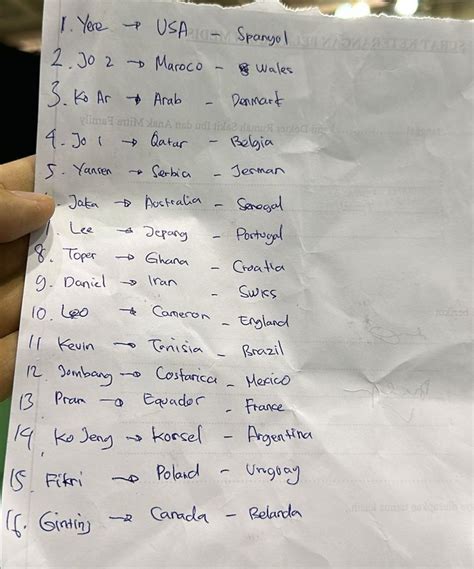 1. Yere → USA - Spanyol
2. Jo 2 → Maroco - Wales
3. Ko Ar → Arab - Denmark
4. Jo 1 → Qatar - Belgia
5. Yansen → Serbia - Jerman
Jaka → Australia - Senegal
Lee → Jepang - Portugal
8. Toper → Ghana - Croatia
9. Daniel → Iran - Swiss
10. Leo → Cameron - England
11 Kevin → Tunisia - Brazil
12. Jombang → Costarica - Mexico
13 Pram → Equador - France
14 Ko Jeng → Korsel - Argentina
15. Fikri → Poland - Uruguay
16. Ginting → Canada - Belanda